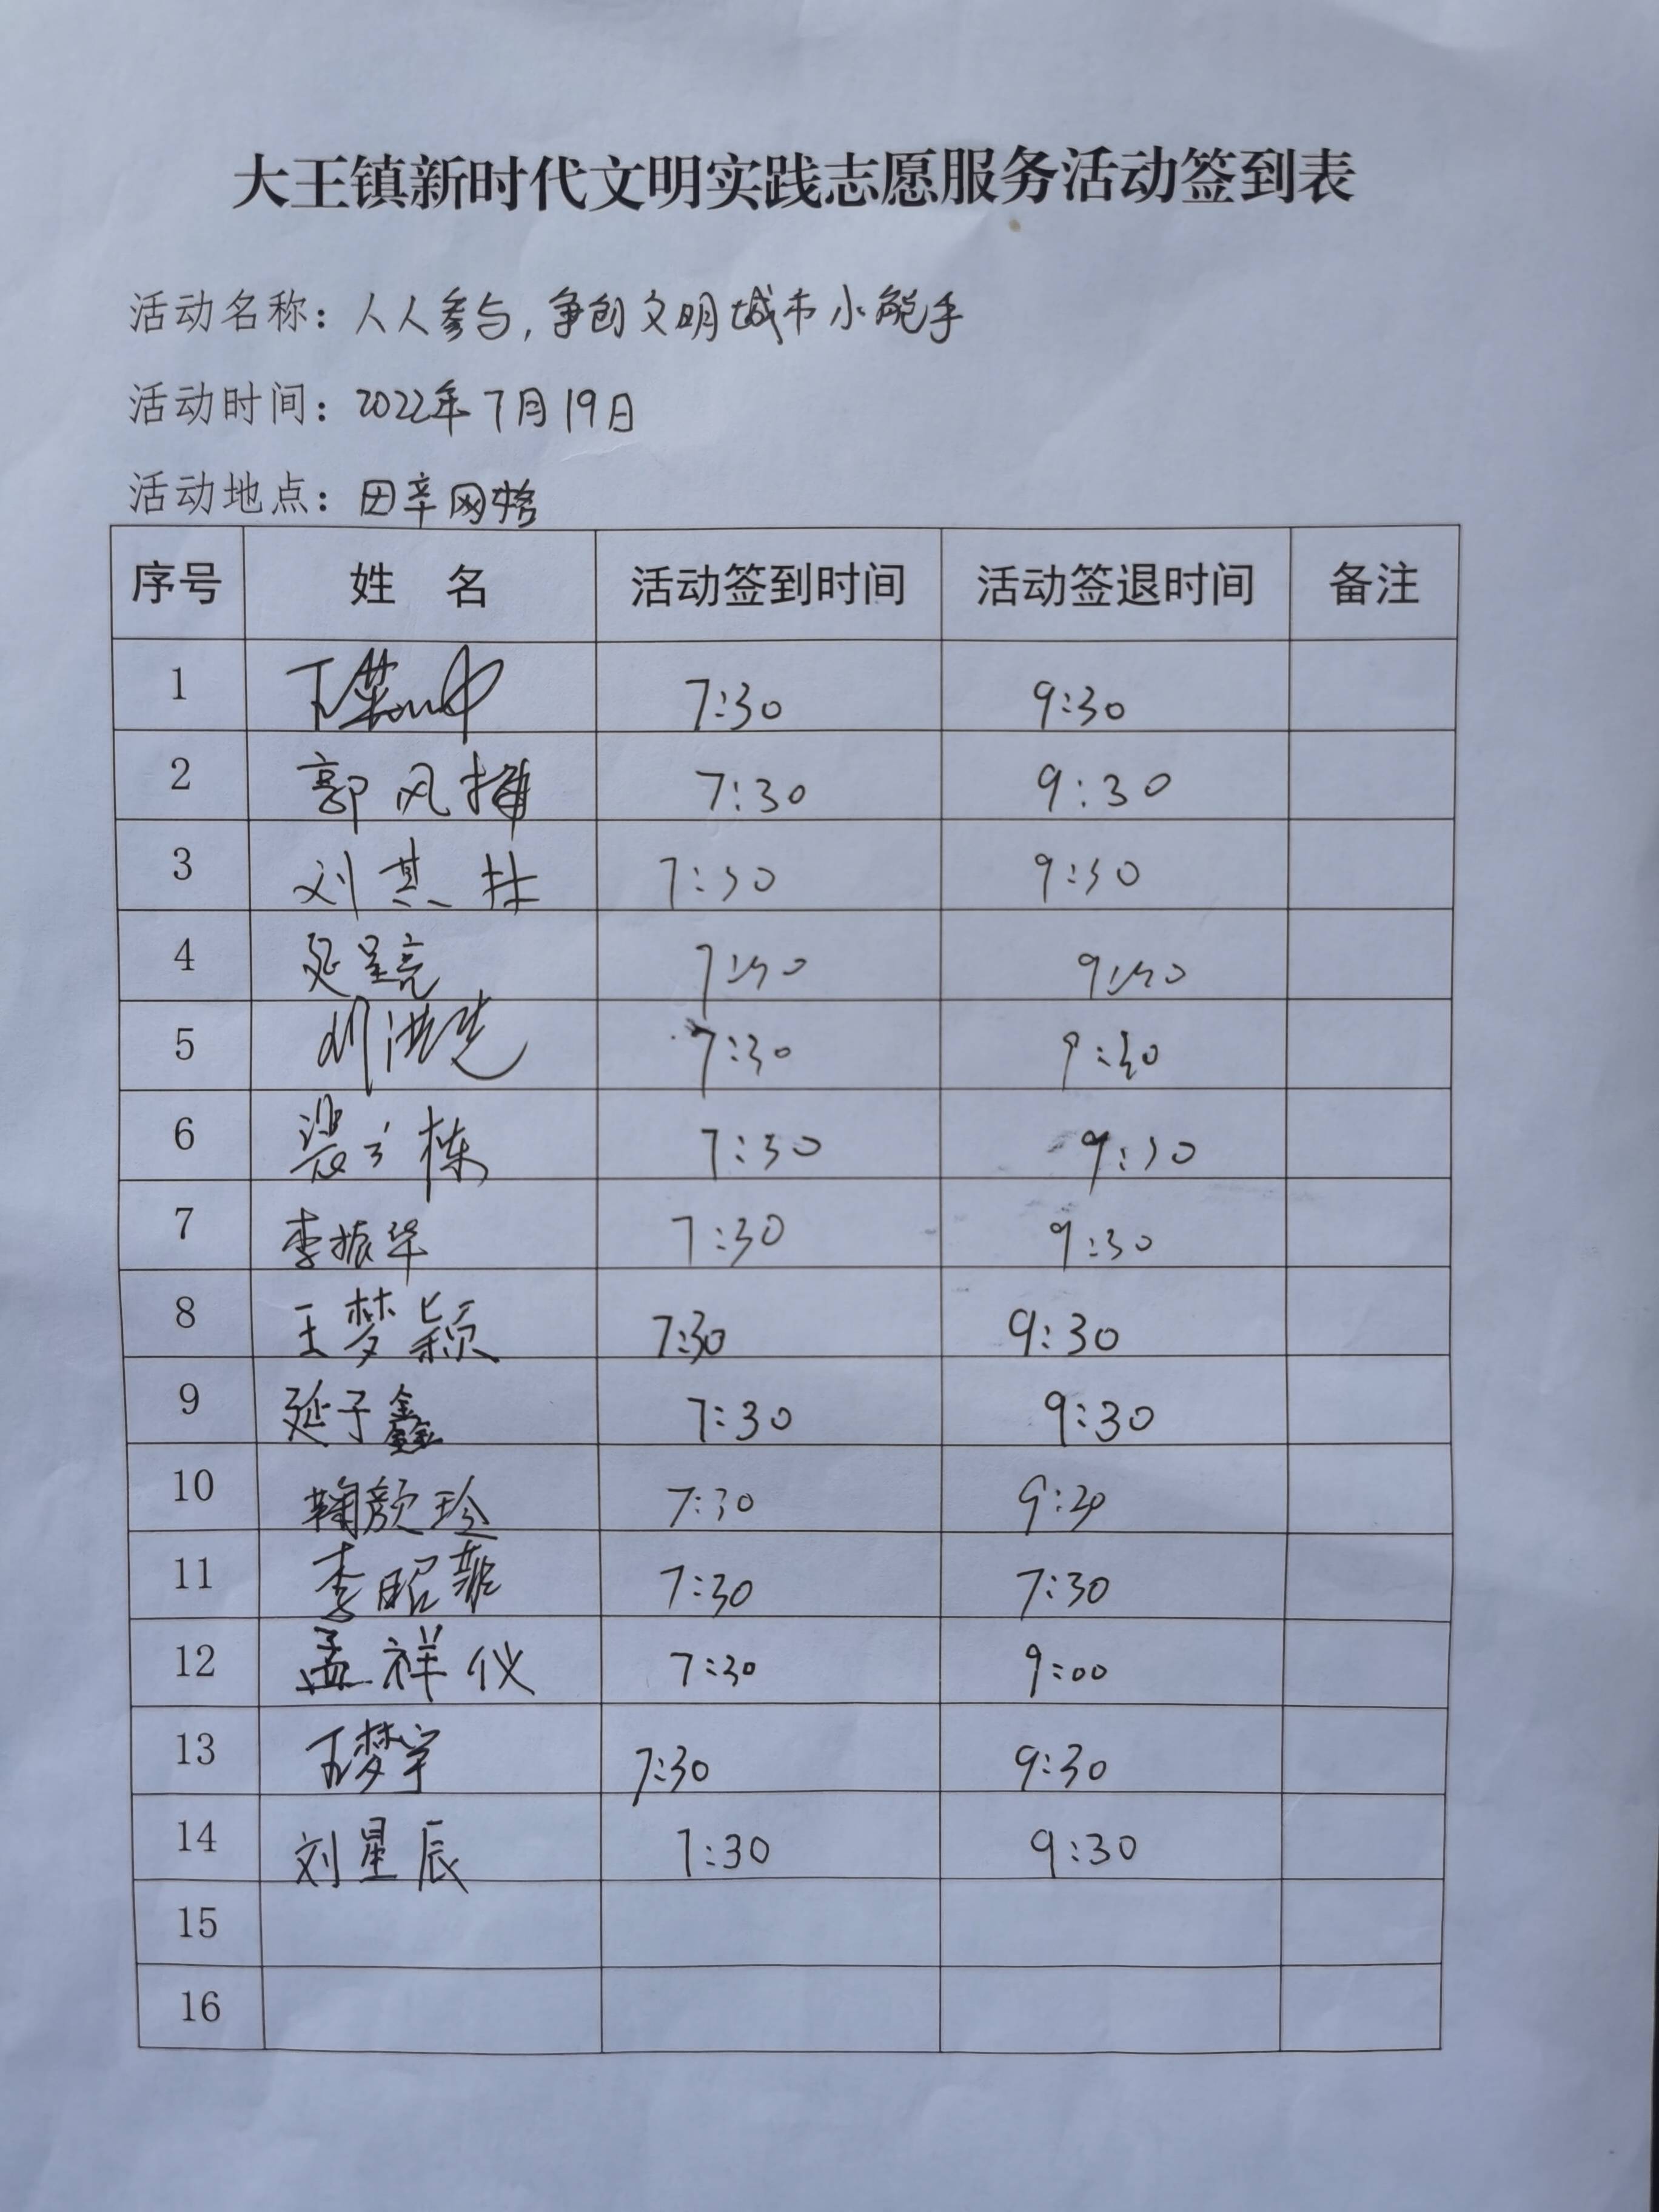 大王镇新时代文明实践志愿服务活动签到表
活动名称：人人参与，争创文明城市小能手
活动时间：2022年7月19日
活动地点：田辛网格
序号 姓 名 活动签到时间 活动签退时间 备注
1 7:30 9:30
2 郭风 7:30 9:30
3 刘其 7:30 9:30
4 延 亮 7:30 9:30
5 刘洪 7:30 9:30
6 栋 7:30 9:30
7 李振华 7:30 9:30
8 王梦颖 7:30 9:30
9 延子鑫 7:30 9:30
10 鞠颜玲 7:30 9:30
11 李昭菲 7:30 7:30
12 孟祥仪 7:30 9:00
13 王梦宇 7:30 9:30
14 刘星辰 7:30 9:30
15
16